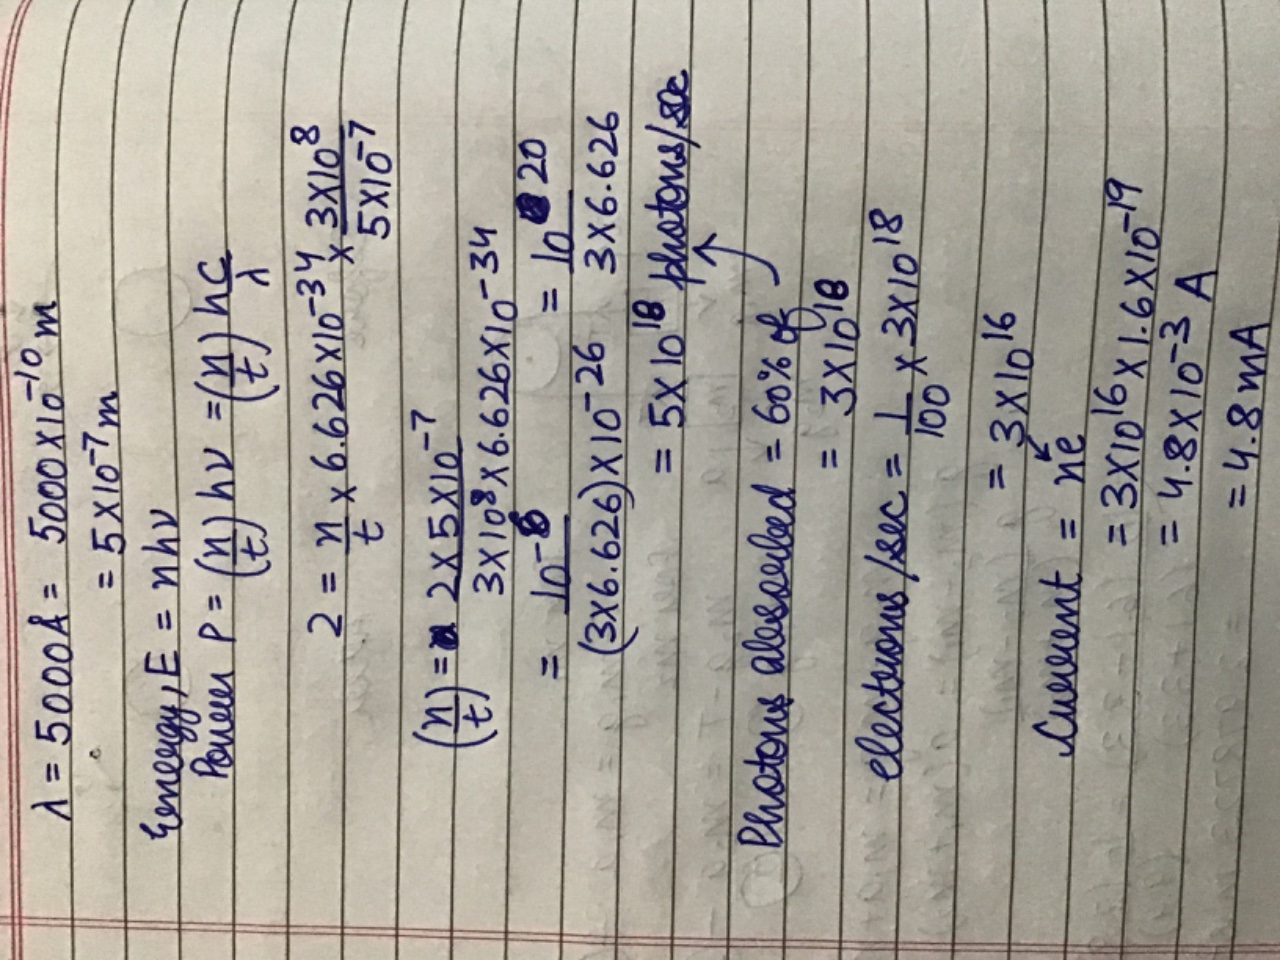 λ = 5000Å = 5000X10⁻¹⁰m
= 5X10⁻⁷m
Energy, E = nhν
Power P = (n/t) hν = (n/t) hc/λ
2 = n/t x 6.626X10⁻³⁴ x 3X10⁸/5X10⁻⁷
(n/t) = 2X5X10⁻⁷/3X10⁸X6.626X10⁻³⁴
= 10⁻⁶/(3X6.626)X10⁻²⁶ = 10²⁰/3X6.626
= 5X10¹⁸ photons/sec
Photons absorbed = 60% of
= 3X10¹⁸
electrons/sec = 1/100 x 3X10¹⁸
= 3X10¹⁶
Current = ne
= 3X10¹⁶X1.6X10⁻¹⁹
= 4.8X10⁻³ A
= 4.8mA